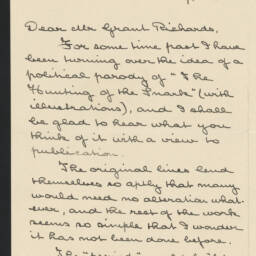 Dear Mr Grant Richards,
For some time past I have
been turning over the idea of a
political parody of "The
Hunting of the Snark" (with
illustrations), and I shall
be glad to hear what you
think of it with a view to
publication.
The original lines lend
themselves so aptly that many
would need no alteration what-
ever, and the rest of the work
seems so simple that I wonder
it has not been done before.